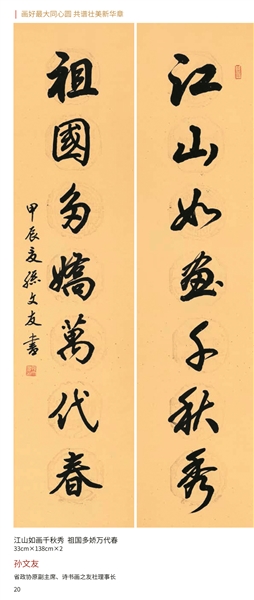 画好最大同心圆 共谱壮美新华章
江山如画千秋秀
祖國多嬌萬代春
甲辰夏孫文友書
江山如画千秋秀 祖国多娇万代春
33cm×138cm×2
孙文友
省政协原副主席、诗书画之友社理事长
20